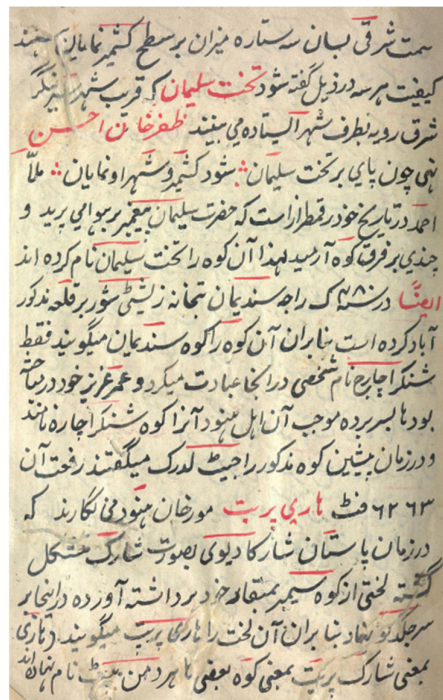 سمت شرقی لبسان سه ستاره میزان بر سطح کشمیر نمایان اند
کیفیت هر سه در ذیل گفته شود تخت سلیمان که قریب شهر سرینگر
شرق رویه بطرف شهر ایستاده می بینند ظفر خان احسن
نهی چون پای بر تخت سلیمان شود کشمیر و شهر او نمایان ملّا
احمد در تاریخ خود رقمطراز است که حضرت سلیمان پیغمبر بر هوا می پرید و
چندی بر فرق کوه آرمید لهذا آن کوه را تخت سلیمان نام کرده اند
ایضاً در سنه ک راجه سندیمان بتخانه زیشتی شور بر قلعه مذکور
آباد کرده است بنابران آن کوه را کوه سندیمان میگویند فقط
شنکراچارج نام شخصی در انجا عبادت میکرد و عمر عزیز خود در
بود باش بسر برده موجب آن اهل هنود آنرا کوه شنکراچاره نامند
و در زمان پیشین کوه مذکور را جیٹ لدرک میگفتند رفعت آن
۶۲۶۳ فٹ هاری پربت مورخان هنود می نگارند که
در زمان باستان شارکا دیوی بصورت شارک متشکل
گشته لختی از کوه سیمر بمنقار خود برداشته آورده در اینجا بر
سر جلدیو نهاد بنابران آن لخت را هاری پربت میگویند (هاری
بمعنی شارک پربت بمعنی کوه بعضی ها هر دمن نام نهاده اند